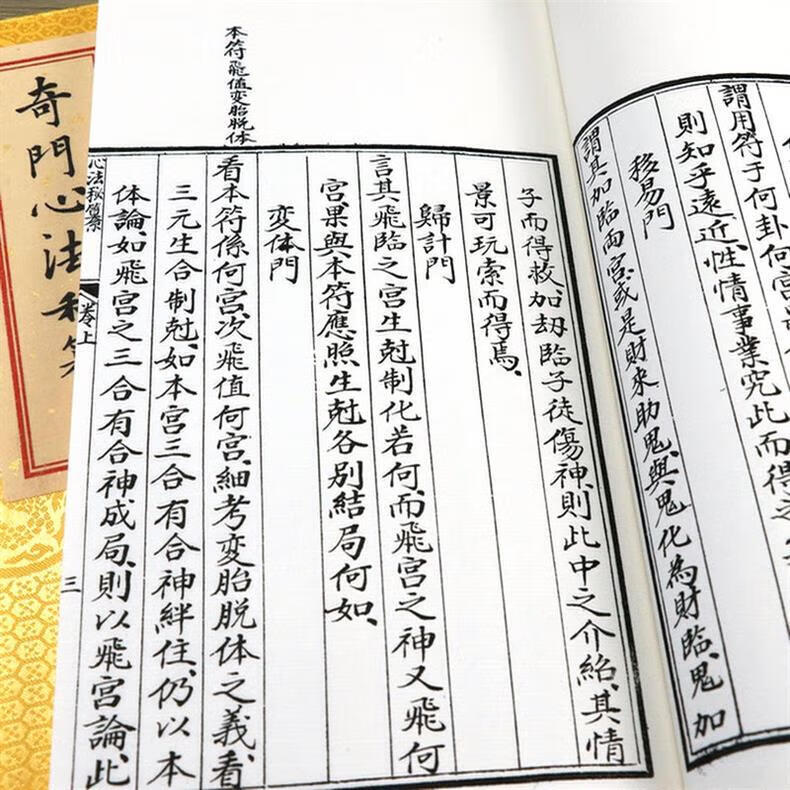 謂用符于何卦何宮
則知乎遠近、性情事業究此而得之
移易門
謂其加臨両宮、或是財来助鬼、與鬼化為財臨、鬼加
子而得救、加刼臨子徒傷神、則此中之介紹、其情
景可玩索而得焉、
歸計門
言其飛臨之宮生尅制化若何、而飛宮之神又飛何
宮、果與本符應照生尅各別結局何如、
変体門
看本符係何宮、次飛值何宮、細考変胎脱体之義、看
三元生合制尅、如本宮三合有合神絆住、仍以本
体論、如飛宮之三合有合神成局、則以飛宮論、此
本符飛值変胎脱体
心法秘
卷上
三
奇門心法秘